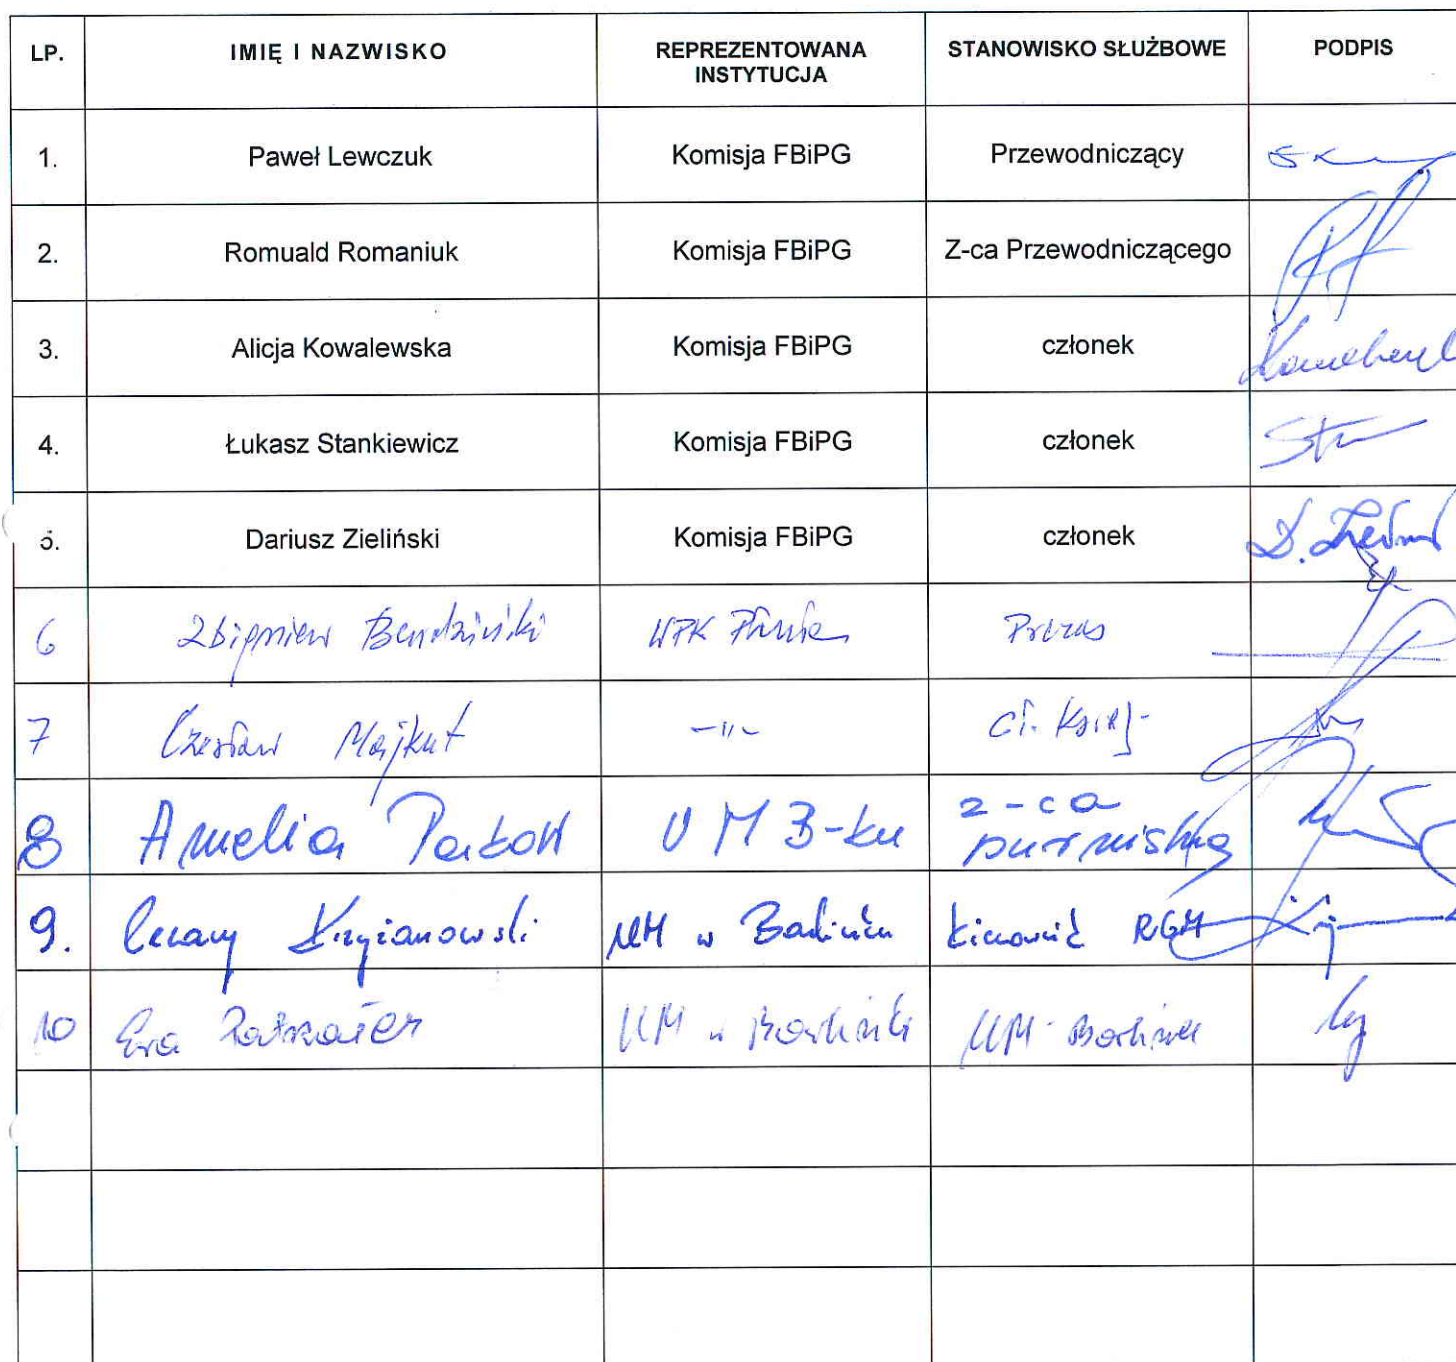 LP. IMIĘ I NAZWISKO REPREZENTOWANA INSTYTUCJA STANOWISKO SŁUŻBOWE PODPIS
1. Paweł Lewczuk Komisja FBiPG Przewodniczący
2. Romuald Romaniuk Komisja FBiPG Z-ca Przewodniczącego
3. Alicja Kowalewska Komisja FBiPG członek
4. Łukasz Stankiewicz Komisja FBiPG członek
5. Dariusz Zieliński Komisja FBiPG członek
6 Zbigniew WPK Płonia Prezes
7 Czesław Majkut -"- Gł. Księg-
8 Amelia UM B-ku z-ca burmistrza
9. Cezary Krzyżanowski UM w Barlinku kierownik RGM
10 Ewa UM w Barlinku UM Barlinek